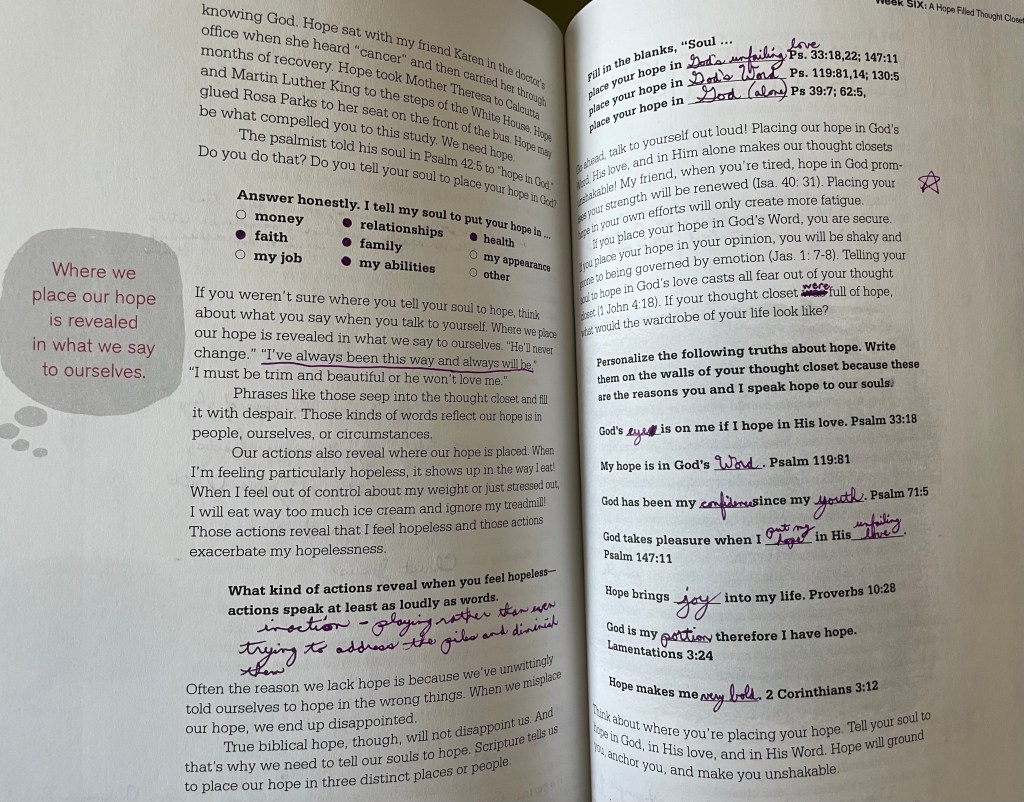 knowing God. Hope sat with my friend Karen in the doctor's
office when she heard "cancer" and then carried her through
months of recovery. Hope took Mother Theresa to Calcutta
and Martin Luther King to the steps of the White House. Hope
glued Rosa Parks to her seat on the front of the bus. Hope may
be what compelled you to this study. We need hope.
The psalmist told his soul in Psalm 42:5 to "hope in God."
Do you do that? Do you tell your soul to place your hope in God?
Answer honestly. I tell my soul to put your hope in ...
money relationships health
faith family my appearance
my job my abilities other
Where we
place our hope
is revealed
in what we say
to ourselves.
If you weren't sure where you tell your soul to hope, think
about what you say when you talk to yourself. Where we place
our hope is revealed in what we say to ourselves. "He'll never
change." "I've always been this way and always will be."
"I must be trim and beautiful or he won't love me."
Phrases like those seep into the thought closet and fill
it with despair. Those kinds of words reflect our hope is in
people, ourselves, or circumstances.
Our actions also reveal where our hope is placed. When
I'm feeling particularly hopeless, it shows up in the way I eat!
When I feel out of control about my weight or just stressed out,
I will eat way too much ice cream and ignore my treadmill!
Those actions reveal that I feel hopeless and those actions
exacerbate my hopelessness.
What kind of actions reveal when you feel hopeless—
actions speak at least as loudly as words.
inaction – playing rather than even
trying to address the piles and diminish
them
Often the reason we lack hope is because we've unwittingly
told ourselves to hope in the wrong things. When we misplace
our hope, we end up disappointed.
True biblical hope, though, will not disappoint us. And
that's why we need to tell our souls to hope. Scripture tells us
to place our hope in three distinct places or people.
Week SIX: A Hope Filled Thought Closet
Fill in the blanks, "Soul ...
place your hope in God's unfailing love Ps. 33:18,22; 147:11
place your hope in God's Word Ps. 119:81,14; 130:5
place your hope in God (alone) Ps 39:7; 62:5,
Go ahead, talk to yourself out loud! Placing our hope in God's
Word, His love, and in Him alone makes our thought closets
unshakable! My friend, when you're tired, hope in God prom-
ises your strength will be renewed (Isa. 40: 31). Placing your
hope in your own efforts will only create more fatigue.
If you place your hope in God's Word, you are secure.
If you place your hope in your opinion, you will be shaky and
prone to being governed by emotion (Jas. 1: 7-8). Telling your
soul to hope in God's love casts all fear out of your thought
closet (1 John 4:18). If your thought closet were full of hope,
what would the wardrobe of your life look like?
Personalize the following truths about hope. Write
them on the walls of your thought closet because these
are the reasons you and I speak hope to our souls.
God's eye is on me if I hope in His love. Psalm 33:18
My hope is in God's Word. Psalm 119:81
God has been my confidence since my youth. Psalm 71:5
God takes pleasure when I put my hope in His unfailing love.
Psalm 147:11
Hope brings joy into my life. Proverbs 10:28
God is my portion therefore I have hope.
Lamentations 3:24
Hope makes me very bold. 2 Corinthians 3:12
Think about where you're placing your hope. Tell your soul to
hope in God, in His love, and in His Word. Hope will ground
you, anchor you, and make you unshakable.